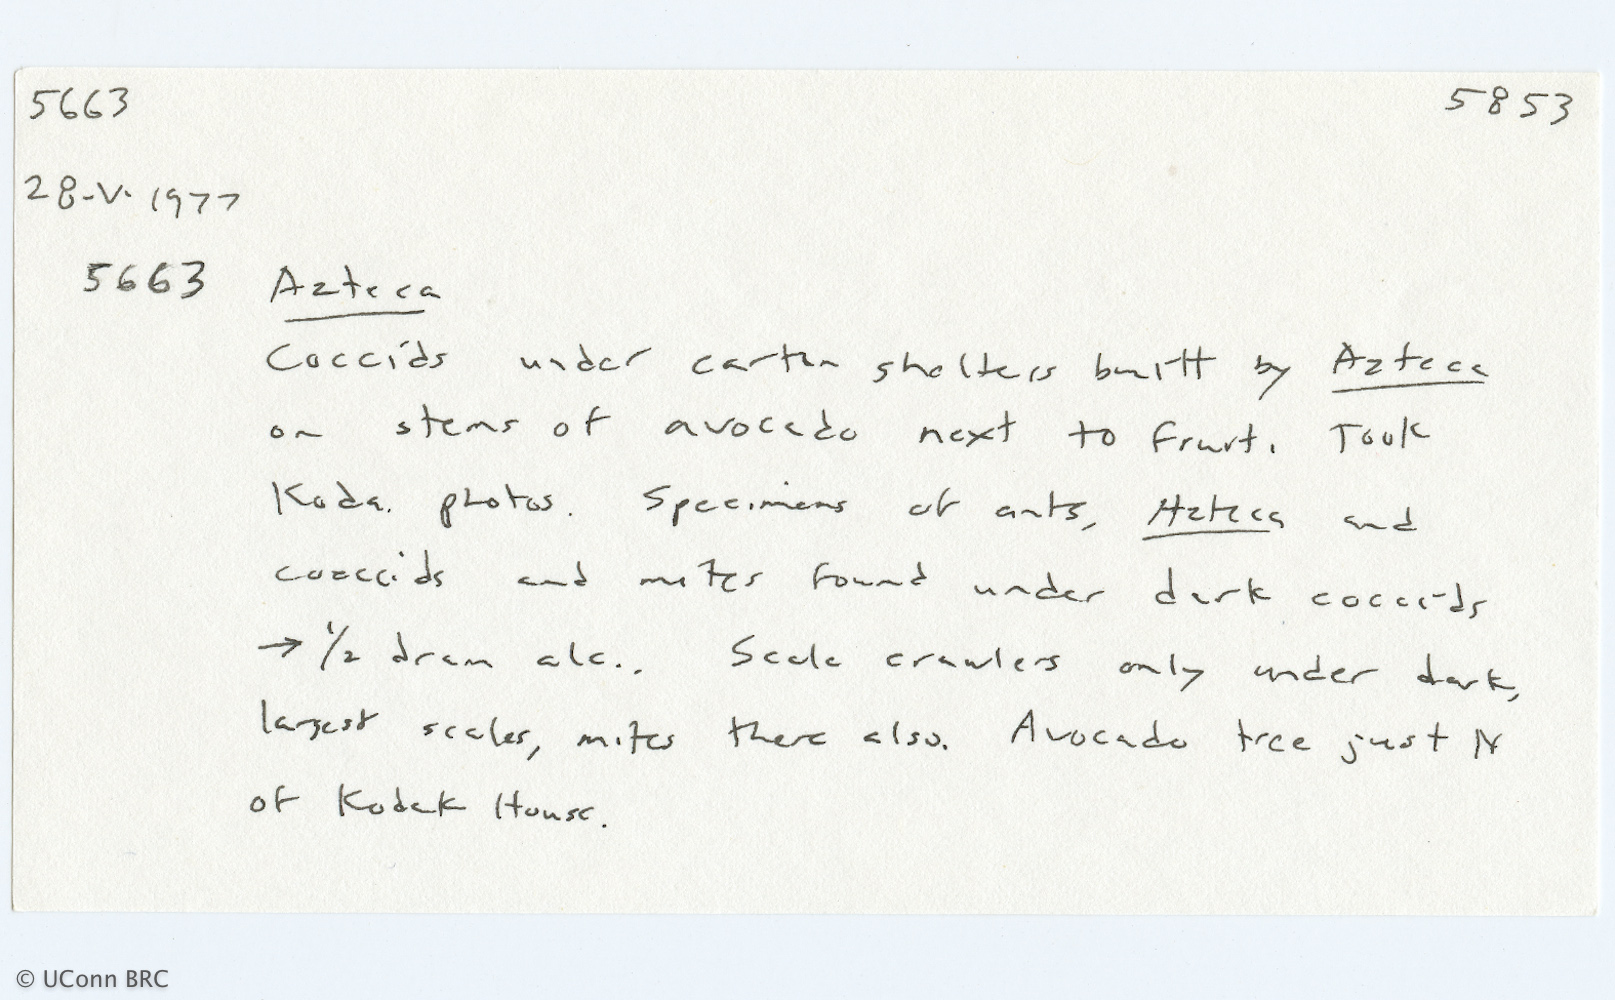 5663 5853
28-V-1977
5663 Azteca
Coccids under carton shelters built by Azteca
on stems of avocado next to fruit. Took
Koda. photos. Specimens of ants, Azteca and
coccids and mites found under dark coccids
→ 1/2 dram alc.. Scale crawlers only under dark,
largest scales, mites there also. Avocado tree just N
of Kodak House.
© UConn BRC